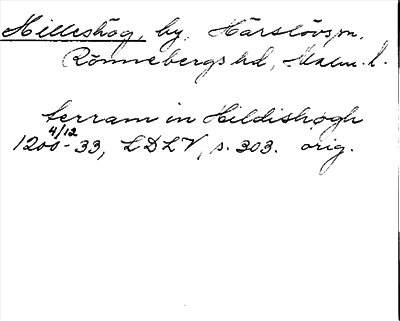 Hilleshög, by, Härslövs sn.
Rönnebergs hd, Malm. l.
terram in Hildishøgh
4/12
1200-33, LDLV, s. 303. orig.